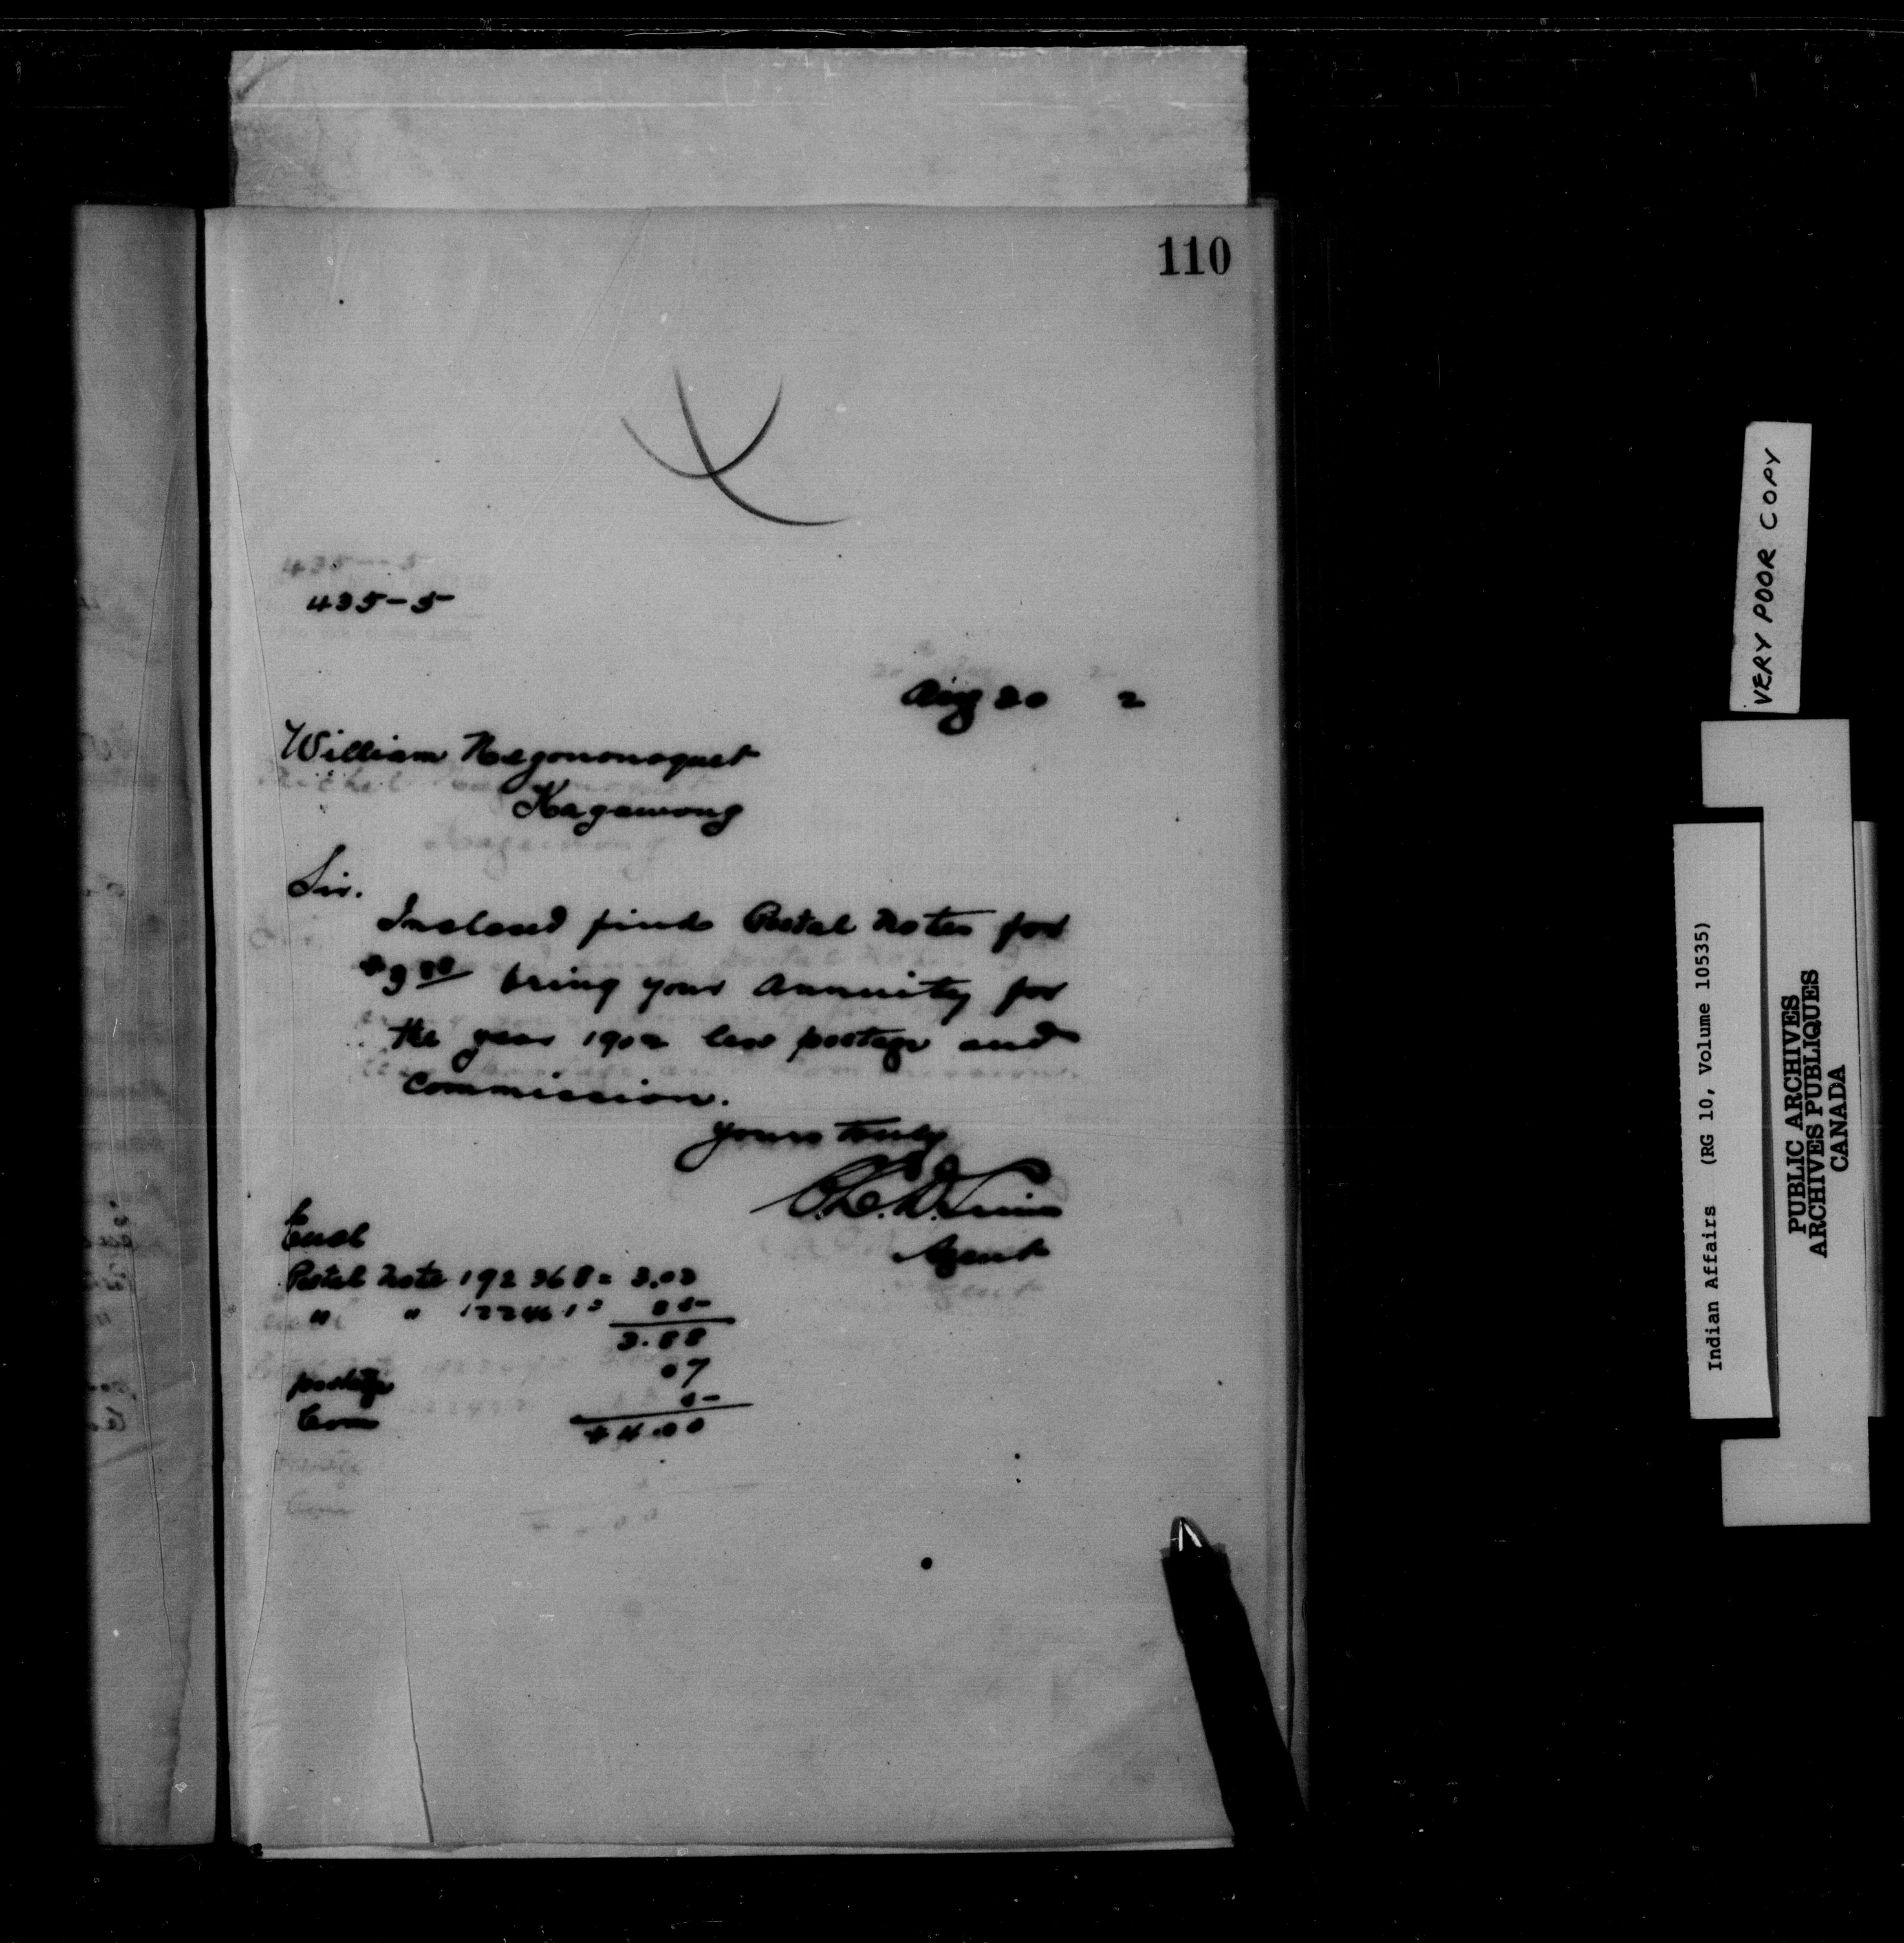 110
435-5
Aug 20 2
William Negononaquet
Kagawong
Sir.
Inclosed find Postal Notes for
$3 88 being your annuity for
the year 1902 less postage and
Commission.
Yours truly
Agent
Encl
Postal Note 192368 = 3.03
" " 122461 = 85
3.88
postage 07
Com 5
$4.00
VERY POOR COPY
Indian Affairs (RG 10, Volume 10535)
PUBLIC ARCHIVES
ARCHIVES PUBLIQUES
CANADA